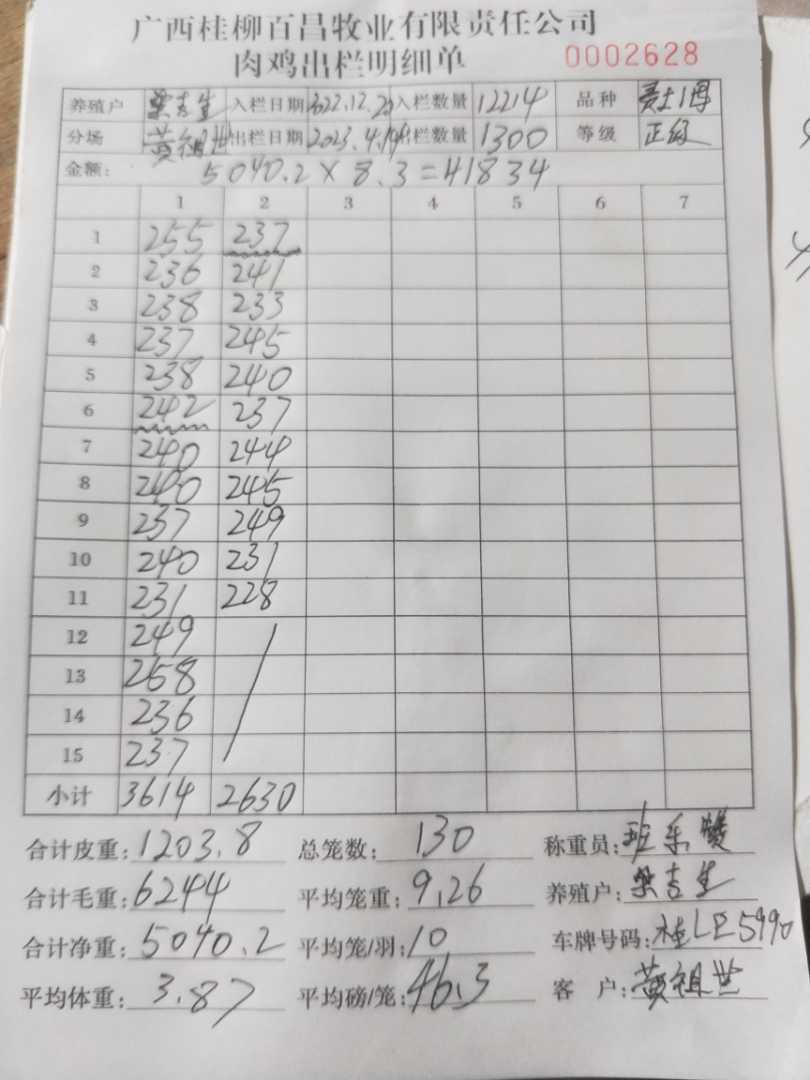 广西桂柳百昌牧业有限责任公司
肉鸡出栏明细单 0002628
养殖户 梁吉生 入栏日期 2022.12.20 入栏数量 12214 品种
分场 黄祖世 出栏日期 2023.4.19 出栏数量 1300 等级 正级
金额: 5040.2×8.3=41834
1 2 3 4 5 6 7
1 255 237
2 236 241
3 238 233
4 237 245
5 238 240
6 242 237
7 240 244
8 240 245
9 237 249
10 240 231
11 231 228
12 249
13 258
14 236
15 237
小计 3614 2630
合计皮重: 1203.8 总笼数: 130 称重员: 班
合计毛重: 6244 平均笼重: 9.26 养殖户: 梁吉生
合计净重: 5040.2 平均笼/羽: 10 车牌号码: 桂L 5990
平均体重: 3.87 平均磅/笼: 46.3 客户: 黄祖世